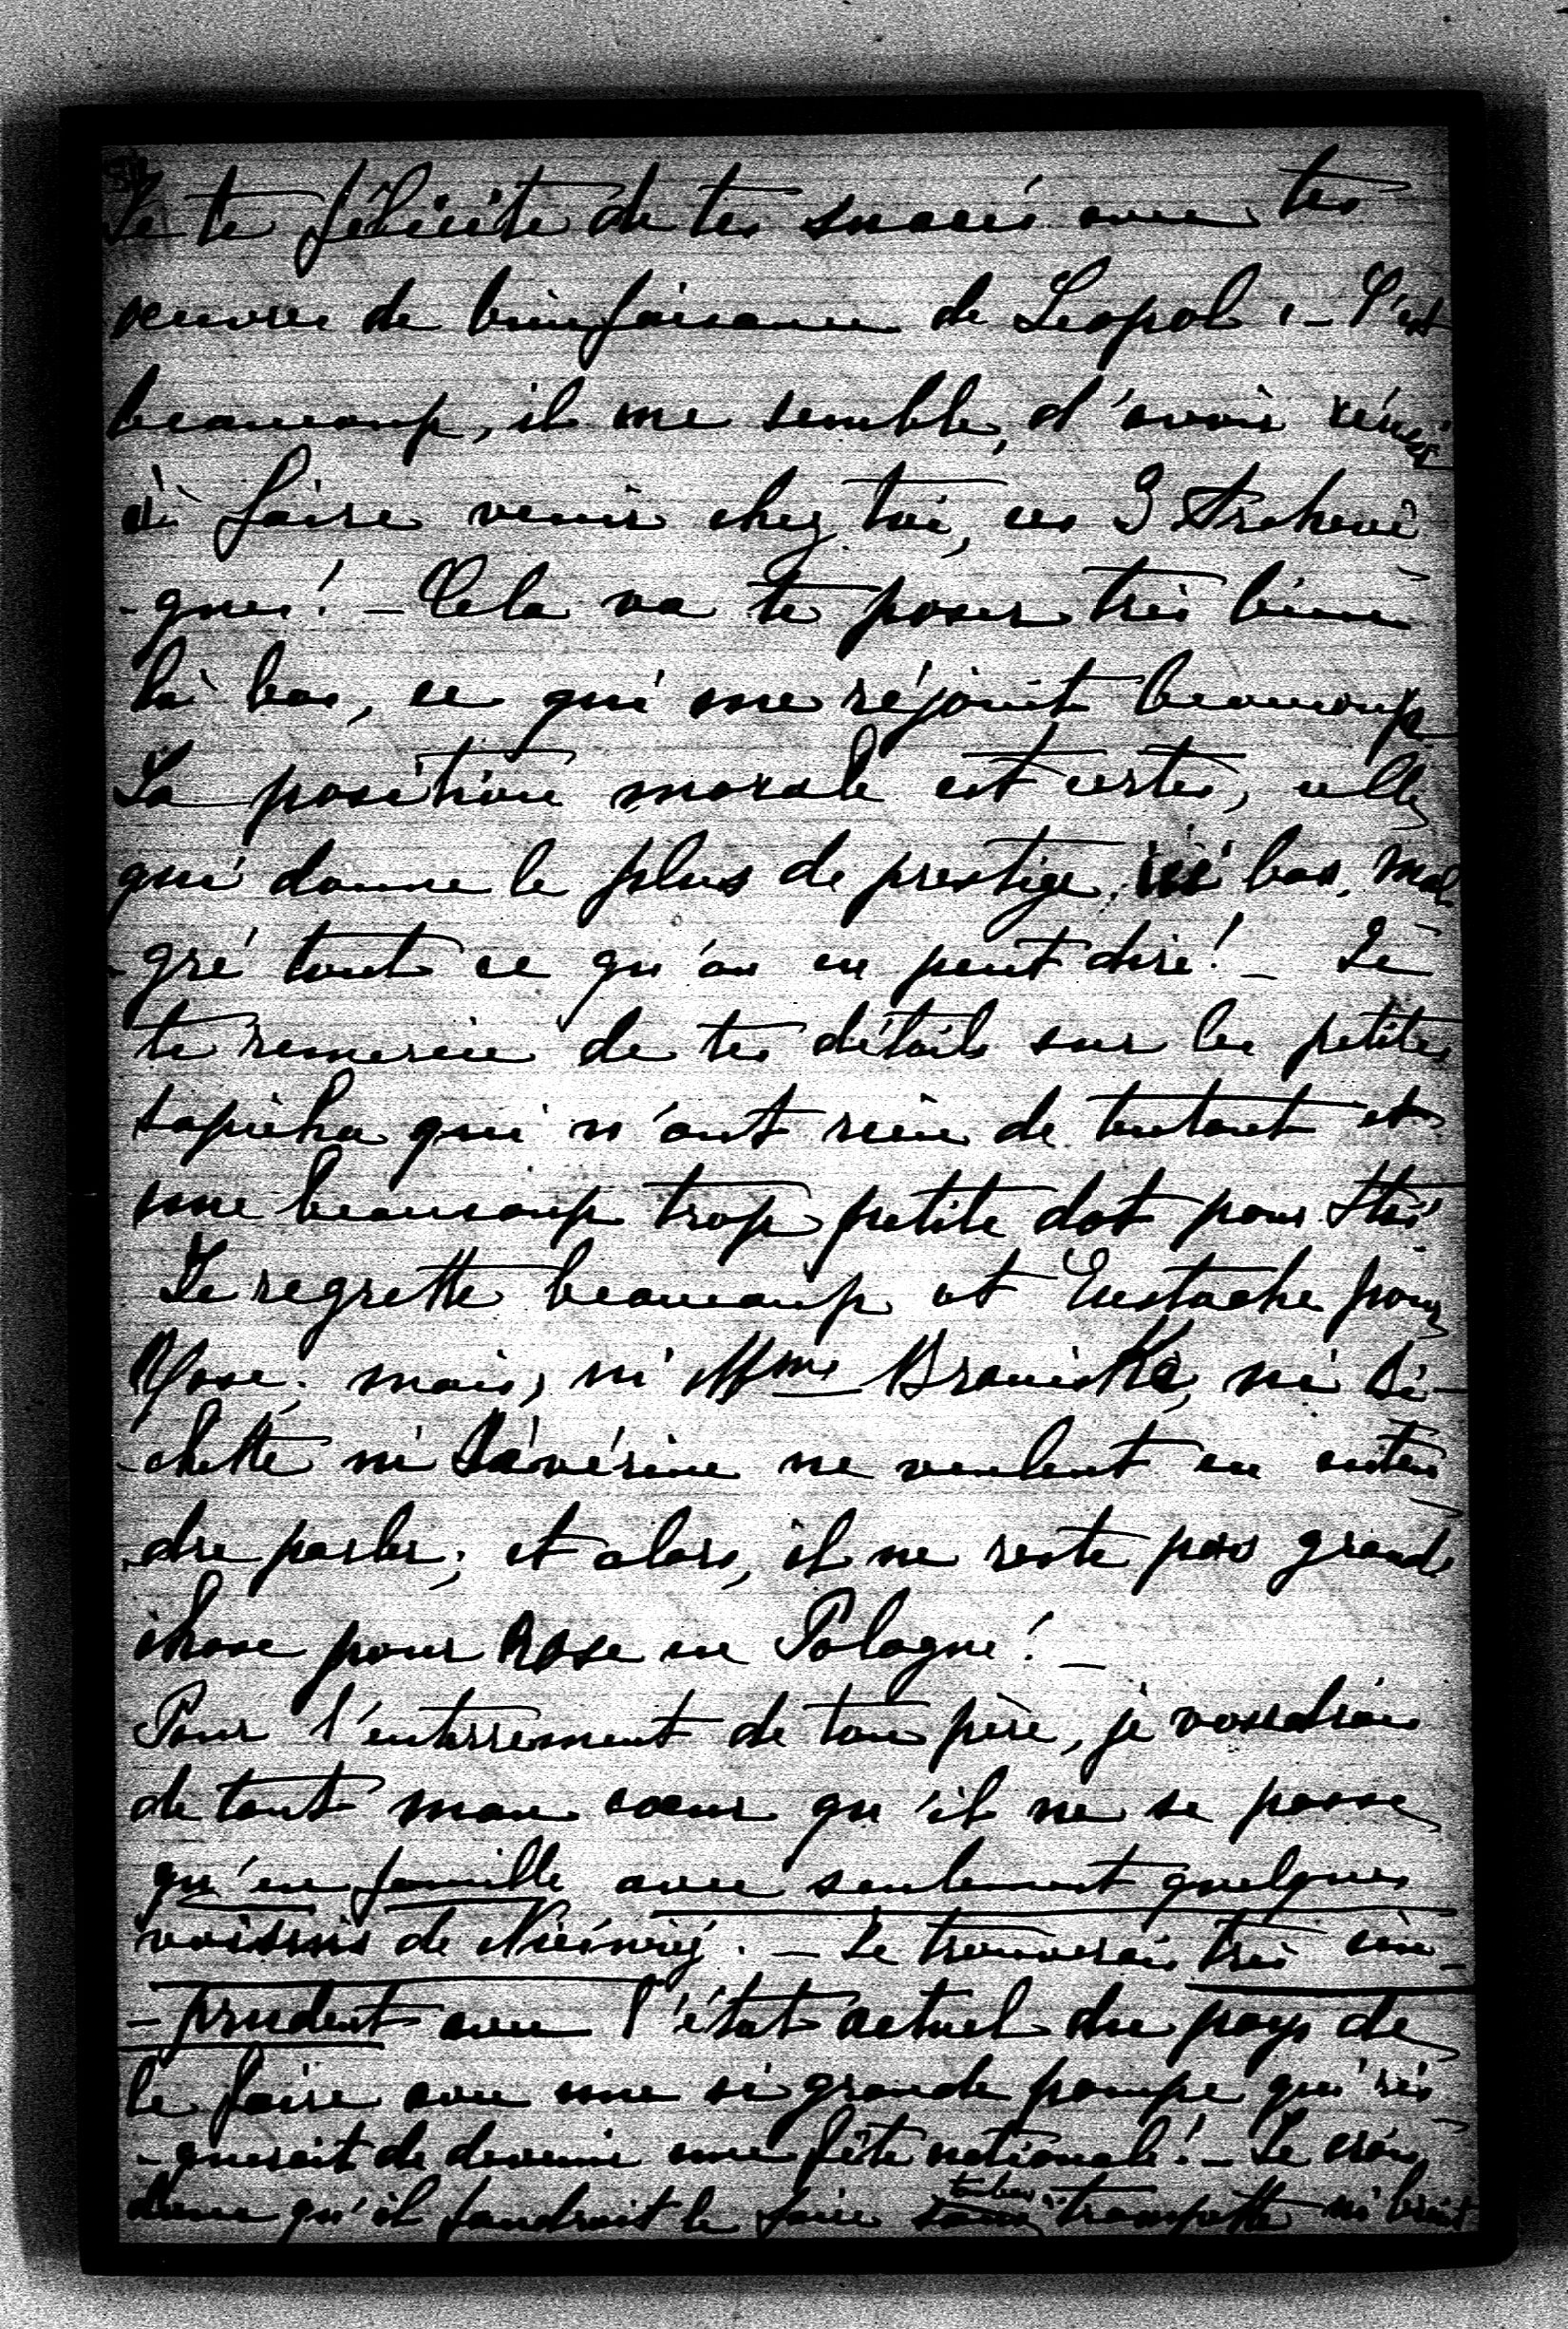 Je te félicite de tes succès avec tes
oeuvres de bienfaisance de Léopol. – C'est
beaucoup, il me semble, d'avoir réussi
à faire venir chez toi, ces 3 Archevê
-ques! – Cela va te poser très bien
là bas, ce qui me réjouit beaucoup
La position morale est certes, celle
qui donne le plus de prestige ici bas, mal
-gré tout ce qu'on en peut dire! – Je
te remercie de tes détails sur les petites
Sapieha qui n'ont rien de tentant et
une beaucoup trop petite dot pour
Je regrette beaucoup et Eustache pour
Rose; mais, ni Mme Braniska, ni Bi-
-chette ni Sévérine ne veulent en enten
-dre parler; et alors, il ne reste pas grand
chose pour Rose en Pologne! –
Pour l'enterrement de ton père, je voudrais
de tout mon coeur qu'il ne se passe
qu'en famille avec seulement quelques
voisins de Nieświéz. – Je trouverais très im-
-prudent avec l'état actuel du pays de
le faire avec une si grande pompe qui ris
-querait de devenir une fête nationale! – Je crois
donc qu'il faudrait le faire sans trompette ni bruit